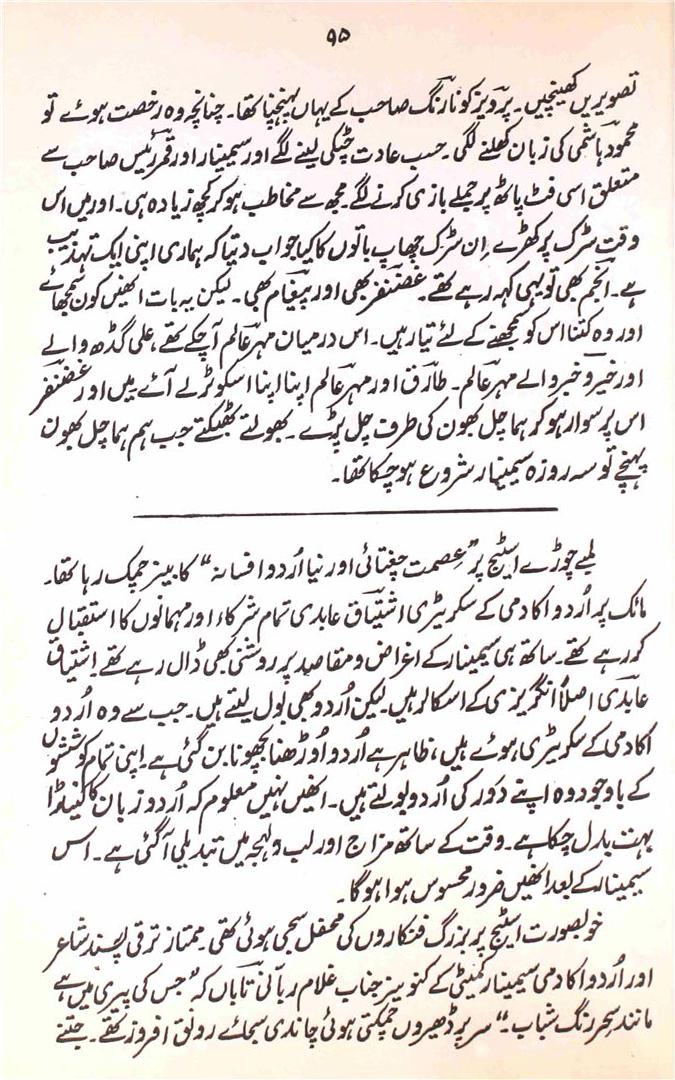 ۹۵
تصویریں کھینچیں۔ پرویز کو نارنگ صاحب کے یہاں پہنچنا تھا۔ چنانچہ وہ رخصت ہوئے تو
محمود ہاشمی کی زبان کھلنے لگی۔ حسب عادت چٹکی لینے لگے اور سیمینار اور قمر رئیس صاحب سے
متعلق اسی فٹ پاتھ پر جملے بازی کرنے لگے۔ مجھ سے مخاطب ہو کر کچھ زیادہ ہی۔ اور میں اس
وقت سڑک پر کھڑے اِن سڑک چھاپ باتوں کا کیا جواب دیتا کہ ہماری اپنی ایک تہذیب
ہے۔ انجم بھی تو یہی کہہ رہے تھے۔ غضنفر بھی اور پیغام بھی۔ لیکن یہ بات انھیں کون سمجھائے
اور وہ کتنا اس کو سمجھنے کے لئے تیار ہیں۔ اس درمیان مہر عالم آچکے تھے، علی گڈھ والے
اور خیر و خبر والے مہر عالم۔ طارق اور مہر عالم اپنا اپنا اسکوٹر لے آئے ہیں اور غضنفر
اس پر سوار ہو کر ہماچل بھون کی طرف چل پڑے۔ بھولتے بھٹکتے جب ہم ہماچل بھون
پہنچے تو سہ روزہ سیمینار شروع ہو چکا تھا۔
لمبے چوڑے اسٹیج پر ”عصمت چغتائی اور نیا اُردو افسانہ“ کا بینر چمک رہا تھا۔
مائک پر اُردو اکادمی کے سکریٹری اشتیاق عابدی تمام شرکاء اور مہمانوں کا استقبال
کر رہے تھے۔ ساتھ ہی سیمینار کے اغراض و مقاصد پر روشنی بھی ڈال رہے تھے۔ اشتیاق
عابدی اصلاً انگریزی کے اسکالر ہیں لیکن اُردو بھی بول لیتے ہیں۔ جب سے وہ اُردو
اکادمی کے سکریٹری ہوئے ہیں، ظاہر ہے اُردو اوڑھنا بچھونا بن گئی ہے۔ اپنی تمام کوششوں
کے باوجود وہ اپنے دَور کی اُردو بولتے ہیں۔ انھیں نہیں معلوم کہ اُردو زبان کا کینوڑا
بہت بدل چکا ہے۔ وقت کے ساتھ مزاج اور لب و لہجہ میں تبدیلی آگئی ہے۔ اس
سیمینار کے بعد انھیں ضرور محسوس ہوا ہوگا۔
خوبصورت اسٹیج پر بزرگ فنکاروں کی محفل سجی ہوئی تھی۔ ممتاز ترقی پسند شاعر
اور اُردو اکادمی سیمینار کمیٹی کے کنوینر جناب غلام ربانی تاباں کہ ”جس کی پیری میں ہے
مانند سحر رنگ شباب۔“ سر پر ڈھیروں چمکتی ہوئی چاندی سجائے رونق افروز تھے۔ جتنے